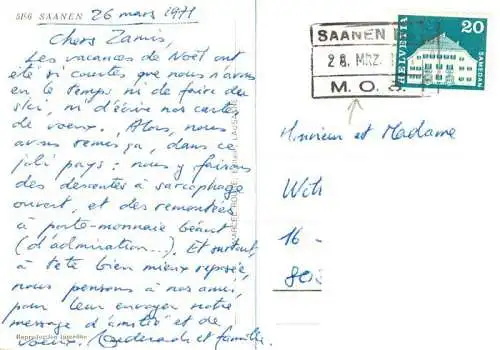 5166 SAANEN
26 mars 1971
Chers Zamis,
Les vacances de Noël ont
été si courtes que nous n'avons
eu le temps ni de faire du
ski, ni d'écrire nos cartes
de voeux. Alors, nous
avons remis ça, dans ce
joli pays : nous y faisons
des descentes à sarcophage
ouvert, et des remontées
à porte-monnaie béant
(d'admiration...). Et surtout,
à tête bien mieux reposée,
nous pensons à nos amis,
pour leur envoyer notre
message d'amitié et de
voeux. et famille.
Reproduction interdite
SAANEN
28. MRZ.
M. O. B.
HELVETIA
20
SAMEDAN
Monsieur et Madame
16 -